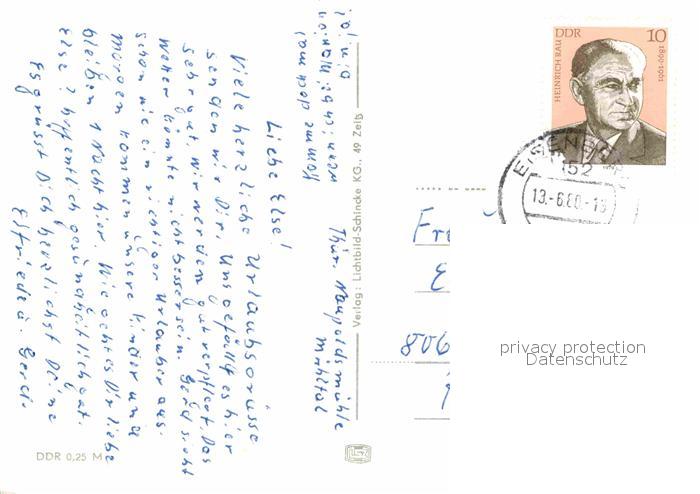 Liebe Else!
Viele herzliche Urlaubsgrüsse
senden wir Dir. Uns gefällt es hier
sehr gut. Wir werden gut verpflegt. Das
Wetter könnte nicht besser sein. Gerd sieht
schon wie ein richtiger Urlauber aus.
Morgen kommen unsere Kinder und
bleiben 1 Nacht hier. Wie geht es Dir liebe
Else? Hoffentlich gesundheitlich gut.
Es grüsst Dich herzlichst Deine
Elfriede u. Gerd.
Komme doch mal
Thür. Naupoldsmühle
Mühltal
Verlag: Lichtbild-Schincke KG., 49 Zeitz
DDR 0,25 M
HEINRICH RAU
DDR
10
1899-1961
EISENBERG
152
13.-6.80.-18
Fr
E
806
privacy protection
Datenschutz